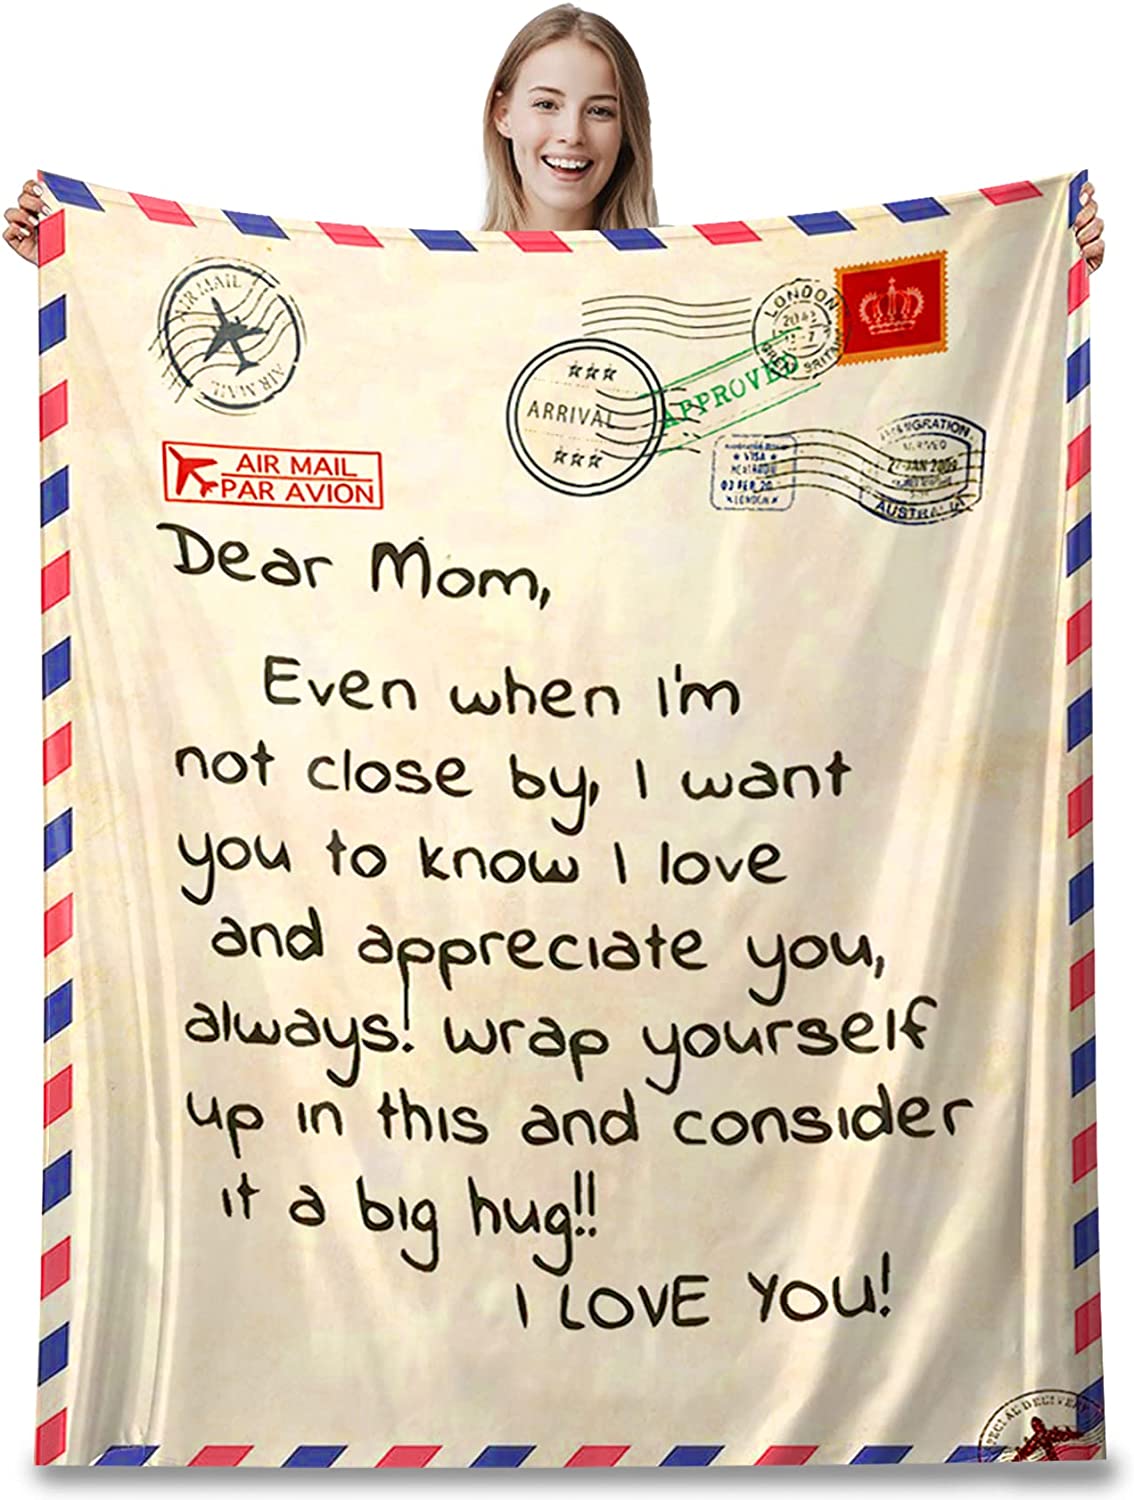 AIR MAIL
AIR MAIL
LONDON
APPROVED
ARRIVAL
VISA
03 FEB 20
LONDON
27 JAN 2009
AUSTRALIA
AIR MAIL
PAR AVION
Dear Mom,
Even when I'm
not close by, I want
you to know I love
and appreciate you,
always! wrap yourself
up in this and consider
it a big hug!!
I LOVE YOU!